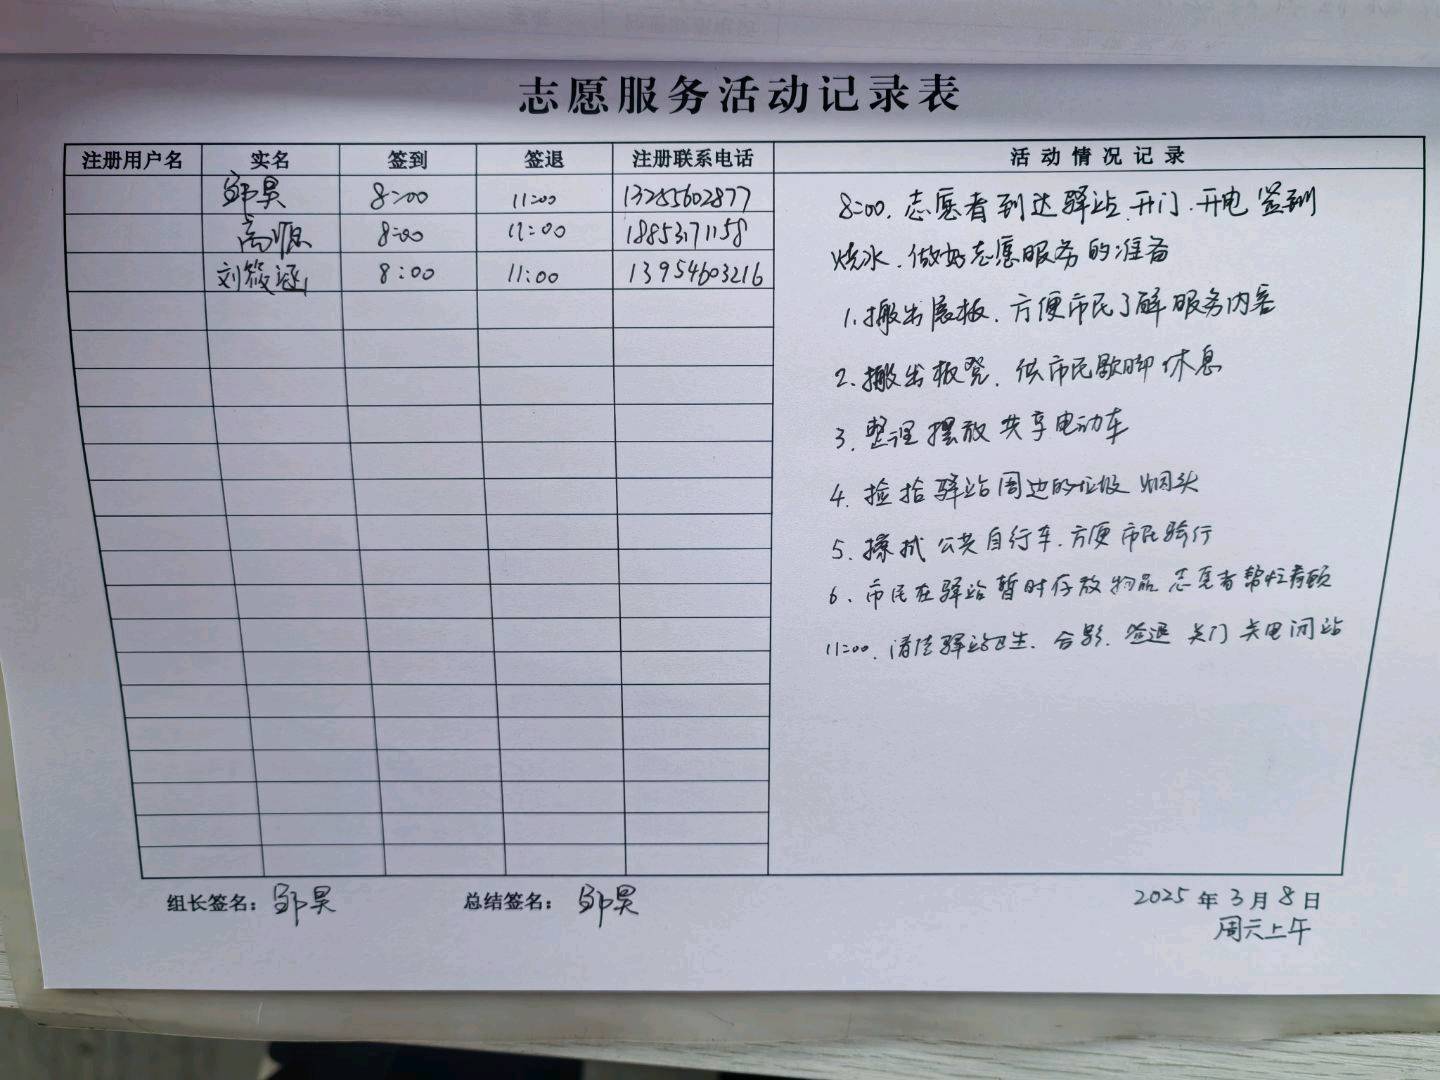 志愿服务活动记录表
注册用户名 实名 签到 签退 注册联系电话 活动情况记录
邹昊 8:00 11:00 13285602877
高源 8:00 11:00 18853171158
刘筱涵 8:00 11:00 13954603216
8:00. 志愿者到达驿站.开门.开电 签到
烧水.做好志愿服务的准备
1.搬出展板.方便市民了解服务内容
2.搬出板凳.供市民歇脚休息
3.整理摆放共享电动车
4.捡拾驿站周边的垃圾 烟头
5.擦拭公共自行车.方便市民骑行
6.市民在驿站暂时存放物品 志愿者帮忙看顾
11:00.清洁驿站卫生.合影.签退 关门 关电 闭站
组长签名：邹昊 总结签名：邹昊 2025年3月8日
周六上午